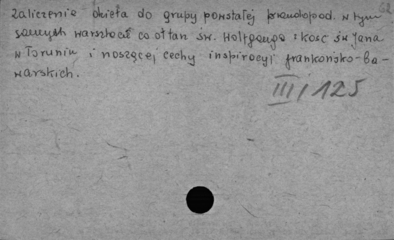 zaliczenie dzieła do grupy powstałej prawdopod. w tym
samym warsztacie co ołtarz św. Wolfganga z kośc św Jana
w Toruniu i noszącej cechy inspiracji frankońsko-ba-
warskich.
III/125